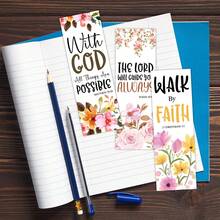 With
GOD
All Things Are
POSSIBLE
THE LORD
WILL GUIDE YOU
ALWAYS
WALK
By
FAITH